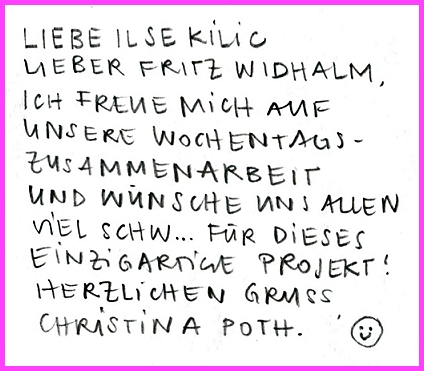 LIEBE ILSE KILIC
LIEBER FRITZ WIDHALM,
ICH FREUE MICH AUF
UNSERE WOCHENTAGS-
ZUSAMMENARBEIT
UND WÜNSCHE UNS ALLEN
VIEL SCHW... FÜR DIESES
EINZIGARTIGE PROJEKT!
HERZLICHEN GRUSS
CHRISTINA POTH.